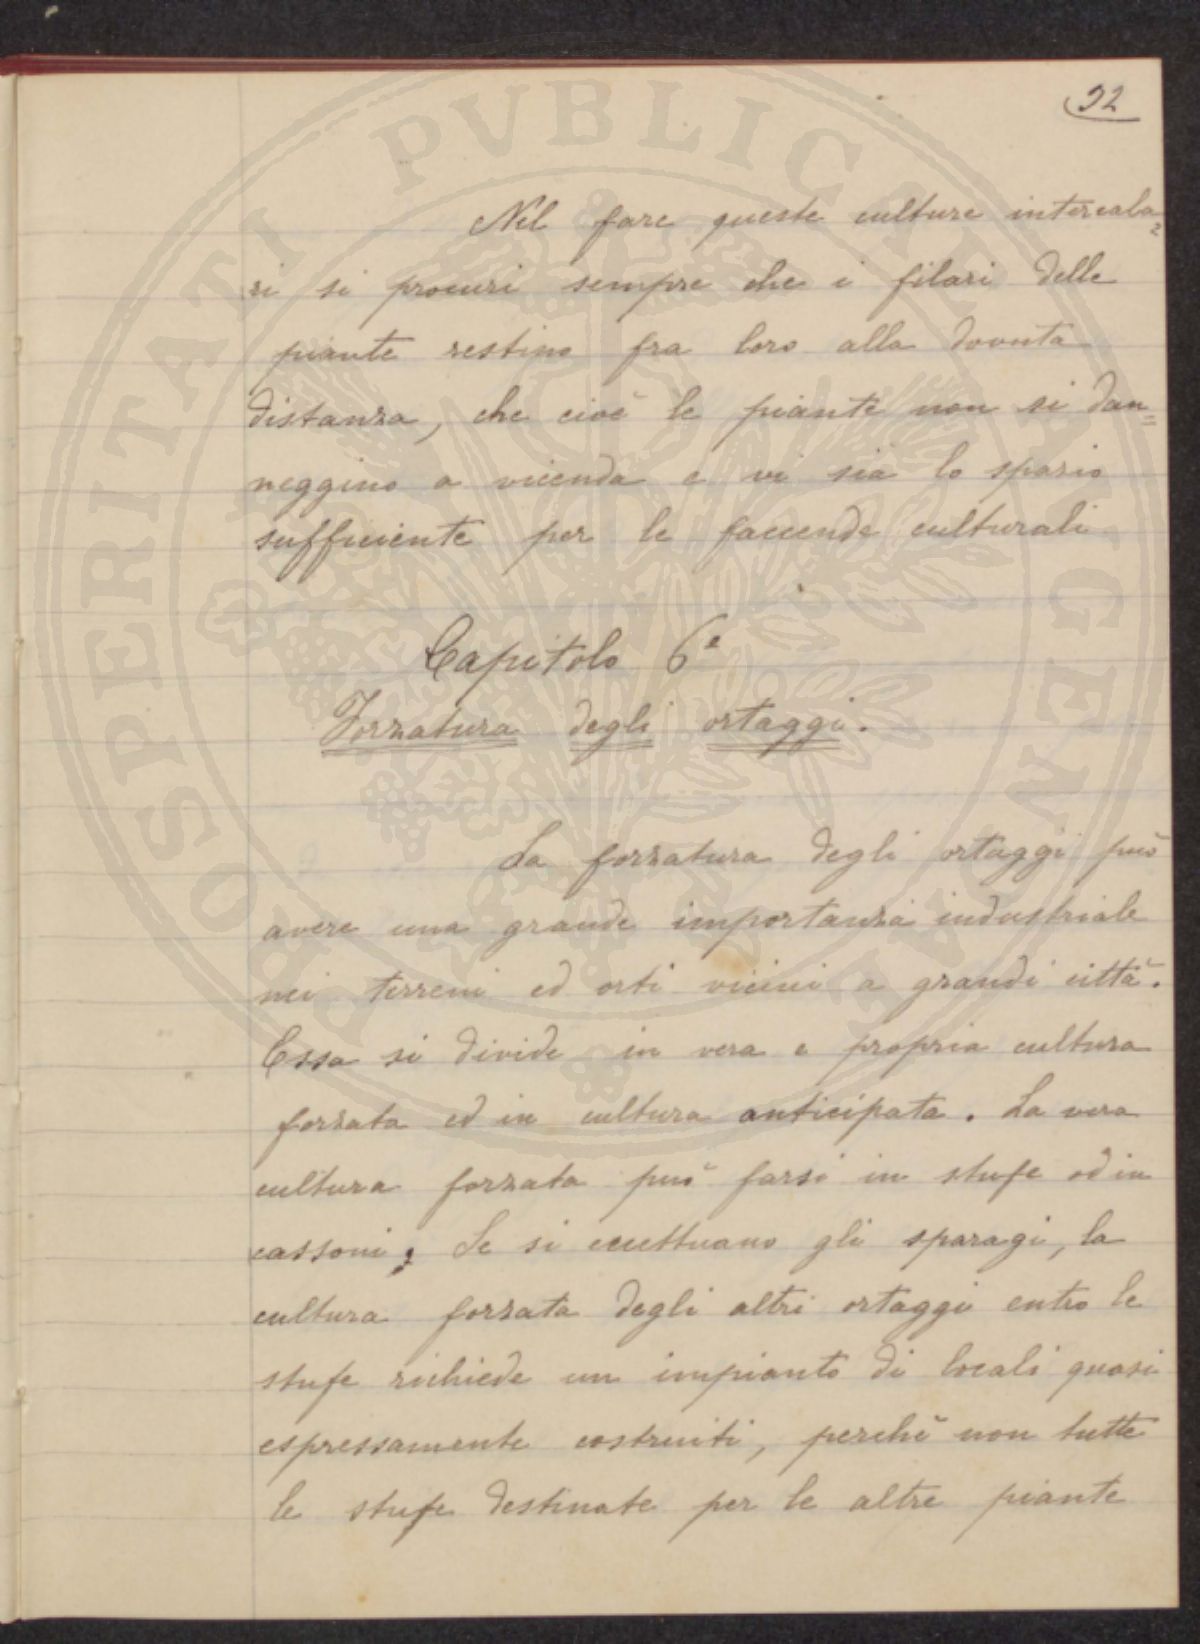 92
Nel fare queste culture intercala=
ri si procuri sempre che i filari delle
piante restino fra loro alla dovuta
distanza, che cioè le piante non si dan=
neggino a vicenda e vi sia lo spazio
sufficiente per le faccende culturali
Capitolo 6º
Forzatura degli ortaggi.
La forzatura degli ortaggi può
avere una grande importanza industriale
nei terreni ed orti vicini a grandi città.
Essa si divide in vera e propria cultura
forzata ed in cultura anticipata. La vera
cultura forzata può farsi in stufe od in
cassoni; Se si eccettuano gli sparagi, la
cultura forzata degli altri ortaggi entro le
stufe richiede un impianto di locali quasi
espressamente costruiti, perchè non tutte
le stufe destinate per le altre piante
PROSPERITATI PVBLICAE AVGENDAE